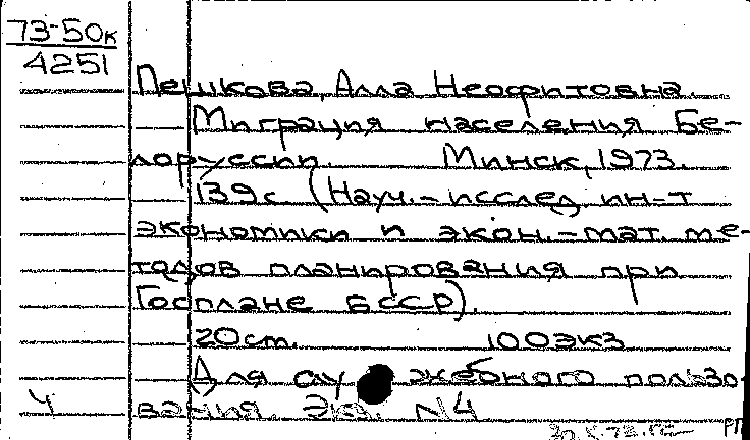 73-50к
4251
Пешкова, Алла Неофитовна.
Миграция населения Бе-
лоруссии. Минск, 1973.
139 с. (Науч.-исслед. ин-т
экономики и экон.-мат. ме-
тодов планирования при
Госплане БССР).
20 см. 100 экз
Для служебного пользо-
Ч вания. Экз. №4
РП